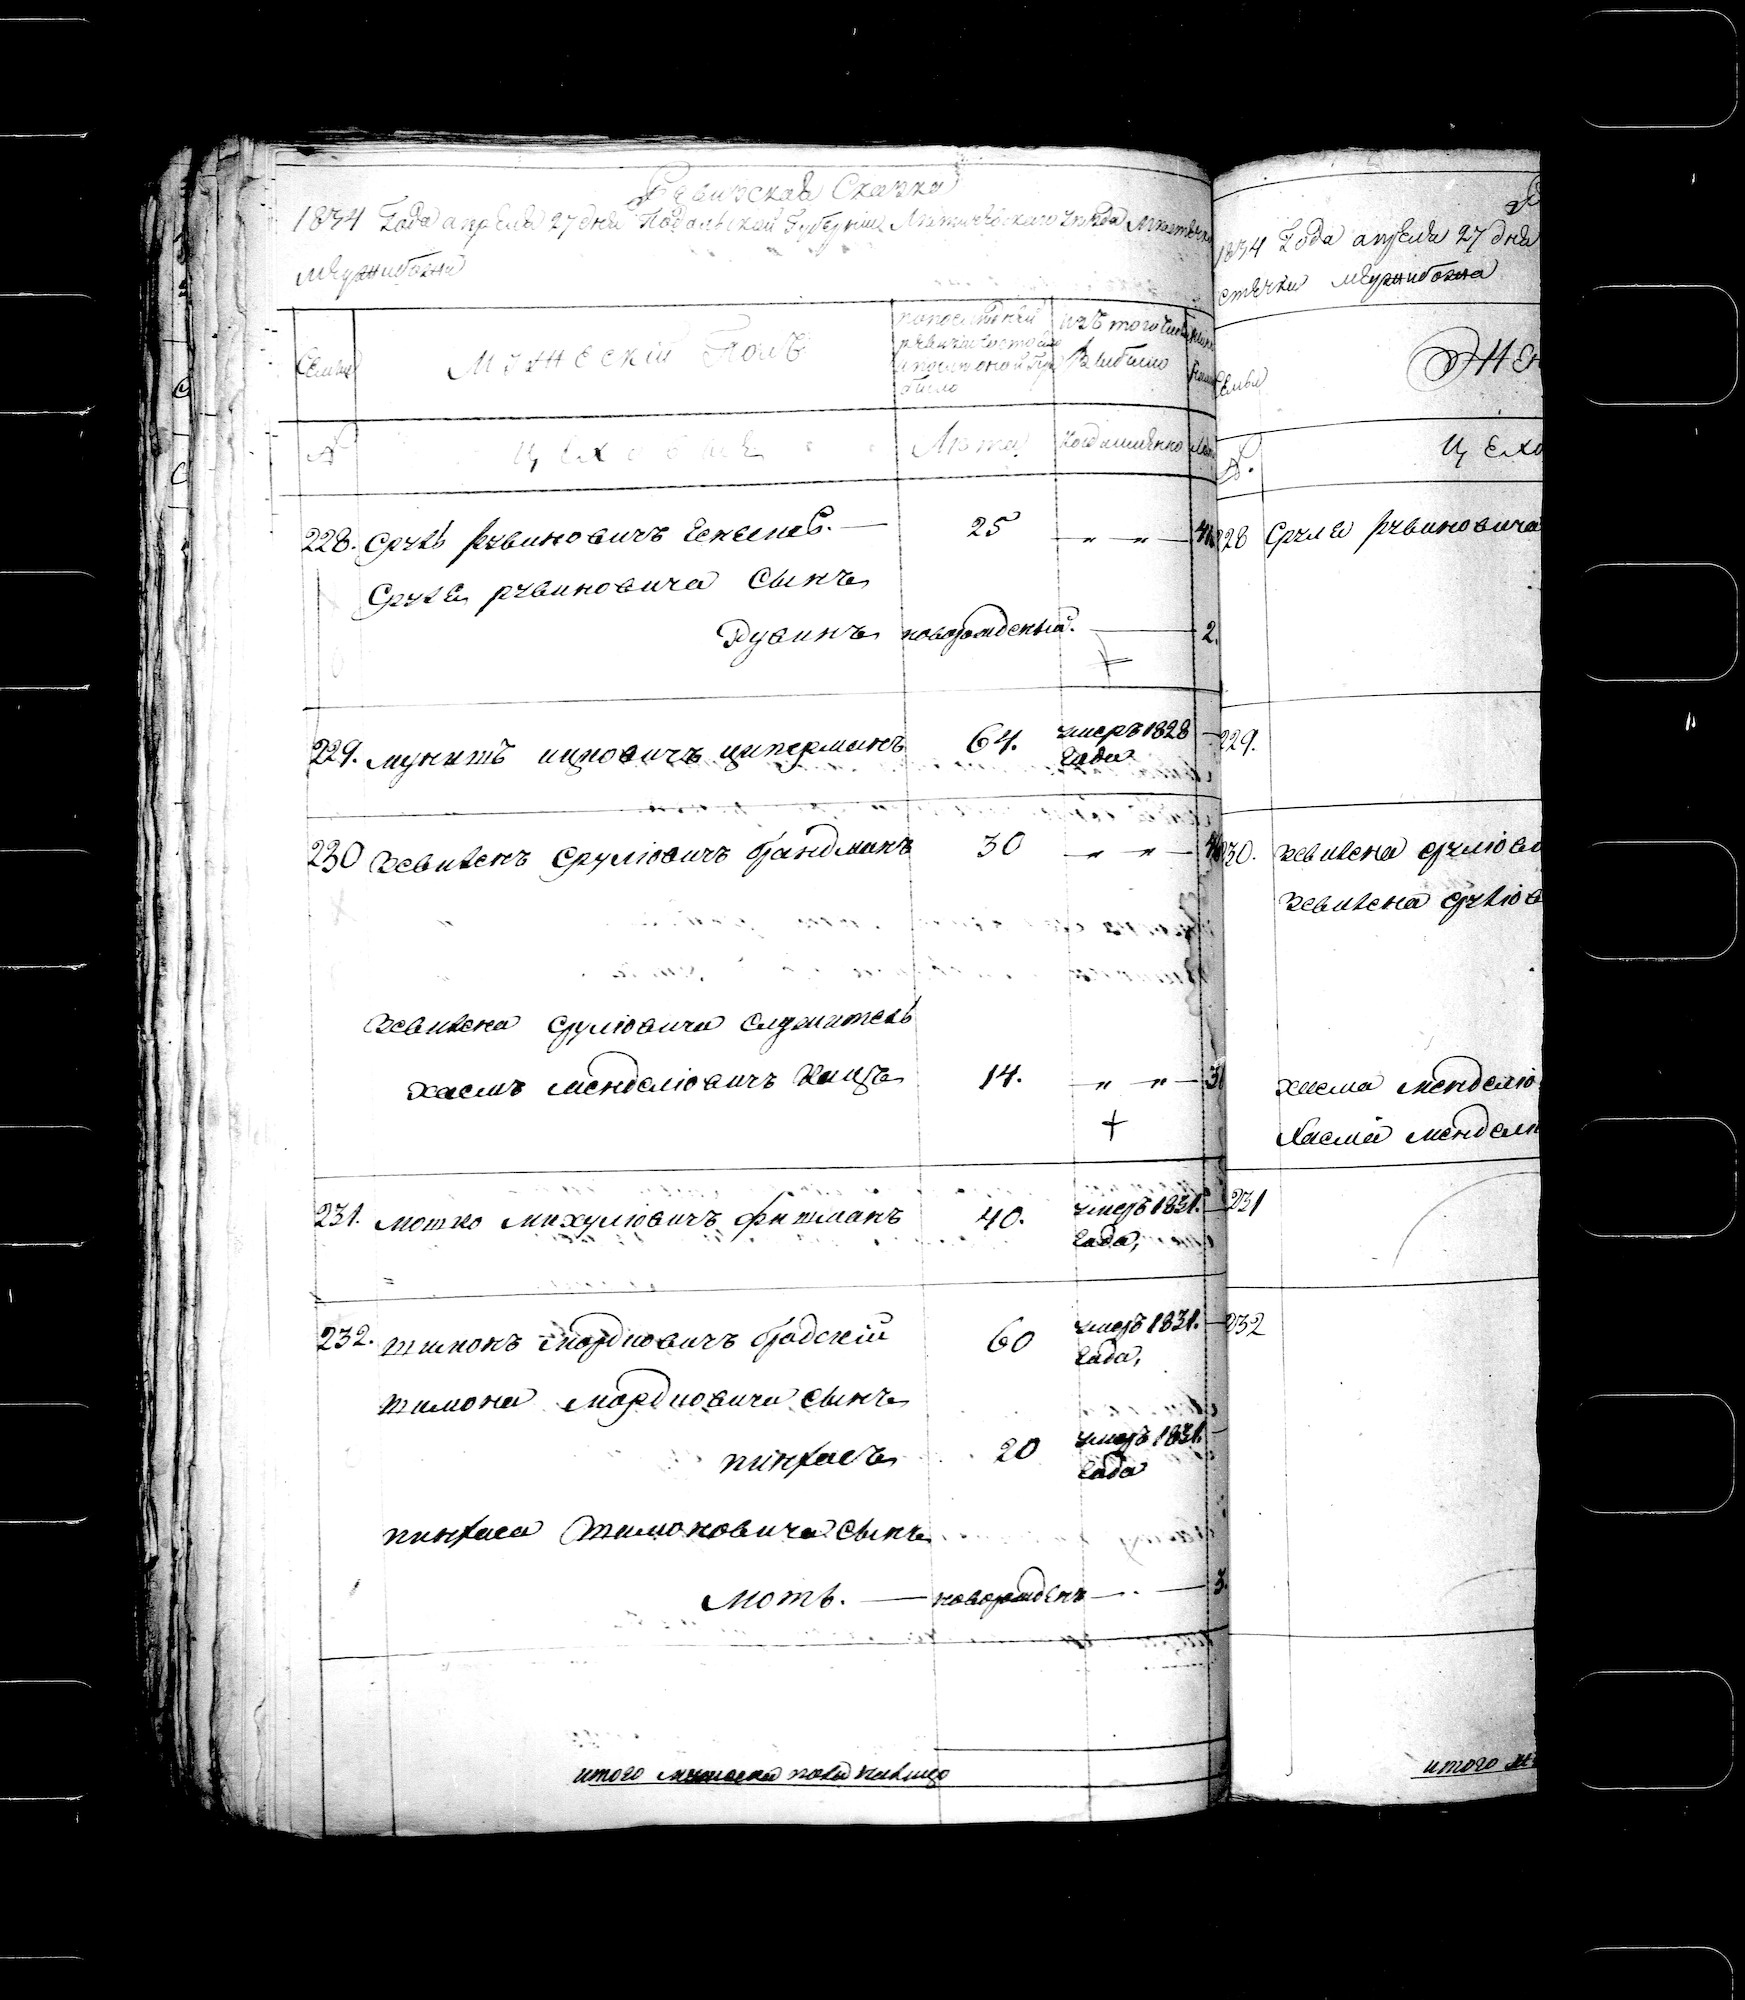 Ревизская Сказка
1834 Года апреля 27 дня Подольской Губерніи Летичевскаго Уезда Местечка
Меджибожа
Семьи
Мужескій Полъ
по последней ревизіи состояло и после оной прибыло
Изъ того числа Выбыло
№
Цеховые
Лета
Когда именно
Лета
228. Сруль Рувиновичъ — 25 „ „ —
Сруля Рувиновича сынъ
Рувинъ новорожденный. — 2.
229. ицковичъ циперманъ 64. умеръ 1828
Года
230 Зевилень Срулiовичъ брандманъ 30 „ „ —
Зевилена Срулiовича служитель
Хаемъ Менделiовичъ Кацъ 14. „ „ —
231. Мотко Михулiовичъ фитманъ 40. умеръ 1831.
Года,
232. Шимонъ Мордковичъ бродскiй 60 умеръ 1831.
Года,
Шимона Мордковича сынъ
пинхасъ 20 умеръ 1831.
Года
пинхаса Шимоновича сынъ
Моть. — новорожденъ — 3.
итого мужеска пола на лицо
1834 Года апреля 27 дня
стечка Меджибожа
Семьи
Жен
№.
Цехо
228 Сруля Рувиновича
229.
230. Зевилена срулiов
Зевилена срулiов
Хаема Менделiо
Хаема Мендел
231
232
итого